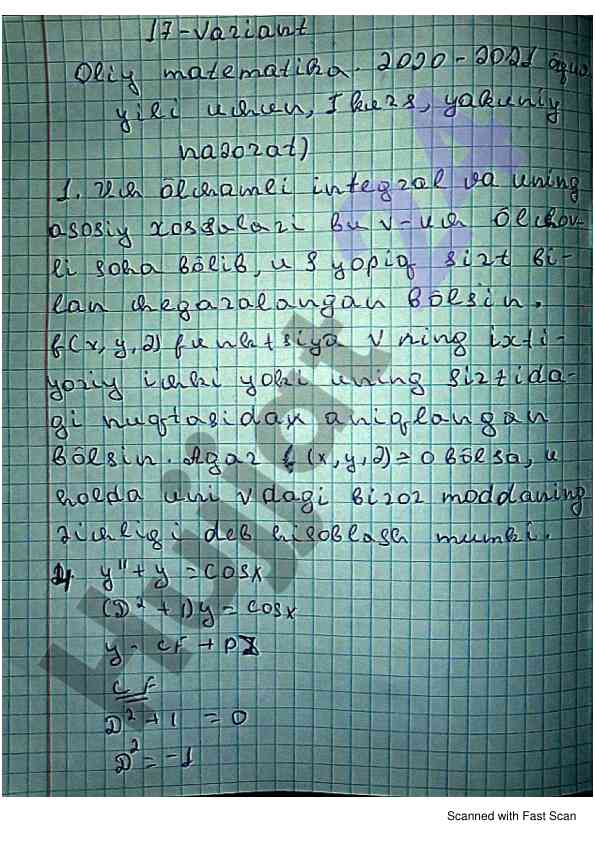 17-Variant
Oliy matematika. 2020-2021 õquv
yili uchun, I kurs, yakuniy
nazorat)
1. Uch õlchamli integral va uning
asosiy xossalari bu v-uch õlchov-
li soha bõlib, u S yopiq sirt bi-
lan chegaralangan bõlsin.
f(x,y,z) funktsiya V ning ixti-
yoriy ichki yoki uning sirtida-
gi nuqtasidan aniqlangan
bõlsin. Agar f(x,y,z)=0 bõlsa, u
holda uni V dagi biror moddaning
zichligi deb hisoblash mumki.
2. y"+y=cosx
(D²+1)y=cosx
y=CF+PI
CF
D²+1=0
D²=-1
Hujjat 24
Scanned with Fast Scan